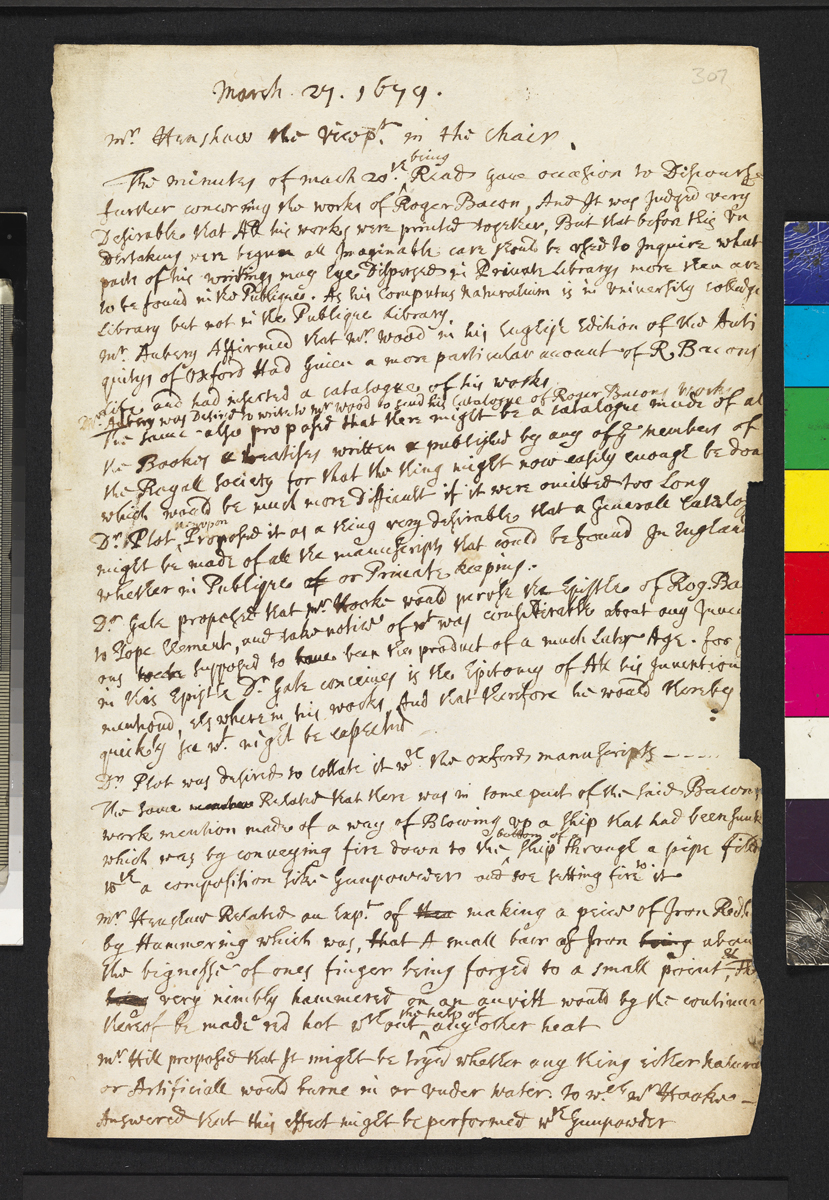 307
March. 27. 1679.
Mr. Henshaw the Vicept. in the chair.
The minutes of mach 20th. being Read gave occasion to Discourse
further concerning the works of Roger Bacon, And It was Judged very
Desirable that All his works were printed together, But that before this Vn
dertaking were begun all Imaginable care should be vsed to Inquire what
parts of his writings may lye Dispersed in Private Librarys more then are
to be found in the Publique. As his Computus Naturalium is in Vniversity colledge
Library but not in the Publique Library.
Mr. Aubery Affirmed that Mr. Wood in his English Edition of the Anti
quitys of Oxford Had Given a more particular account of R. Bacons
life and had inserted a catalogue of his works.
Mr. Aubery was Desired to write to Mr Wood to send his Catalogue of Roger Bacons works
The same also proposed that there might be a catalogue made of al
the Bookes & treatises written & published by any of ye members of
the Royall Society for that the thing might now easily enough be don
which would be much more difficult if it were omitted too Long
Dr. Plot vpon Proposed it as a thing very desirable that a Generall Catalog
might be made of all the manuscripts that could be found In England
whether in Publique of or Private keeping.
Dr. Gale proposed that Mr. Hooke would peruse the Epistle of Rog. Ba
to Pope Clement, and take notice of wt was considerable about any Inve
ons supposed to have been the product of a much Later Age. for
in this Epistle Dr. Gale conceives is the Epitomy of All his Invention
mentiond, elswhere in his works, And that therefore he would thereby
quickly see wt. might be expected
Dr. Plot was desired to collate it wth. the oxford manuscripts -----
The same Related that there was in some part of the said Bacons
work mention made of a way of Blowing vp a ship that had been sunk
which was by conveying fire down to the bottom of Ship through a pipe filld
wth a composition like Gunpowder and soe setting fire to it
Mr. Henshaw Related an Expt. of making a peice of Iron Red h
by Hammering which was, that A small barr of Iron being about
the bignesse of ones finger being forged to a small point &
being very nimbly hammered on an anvill would by the continu
thereof be made red hot wth out the help of any other heat
Mr. Hill proposed that It might be tryd whether any thing either natura
or Artificiall would burne in or vnder water. to wch Mr Hooke -
Answered that this effect might be performed wth Gunpowder